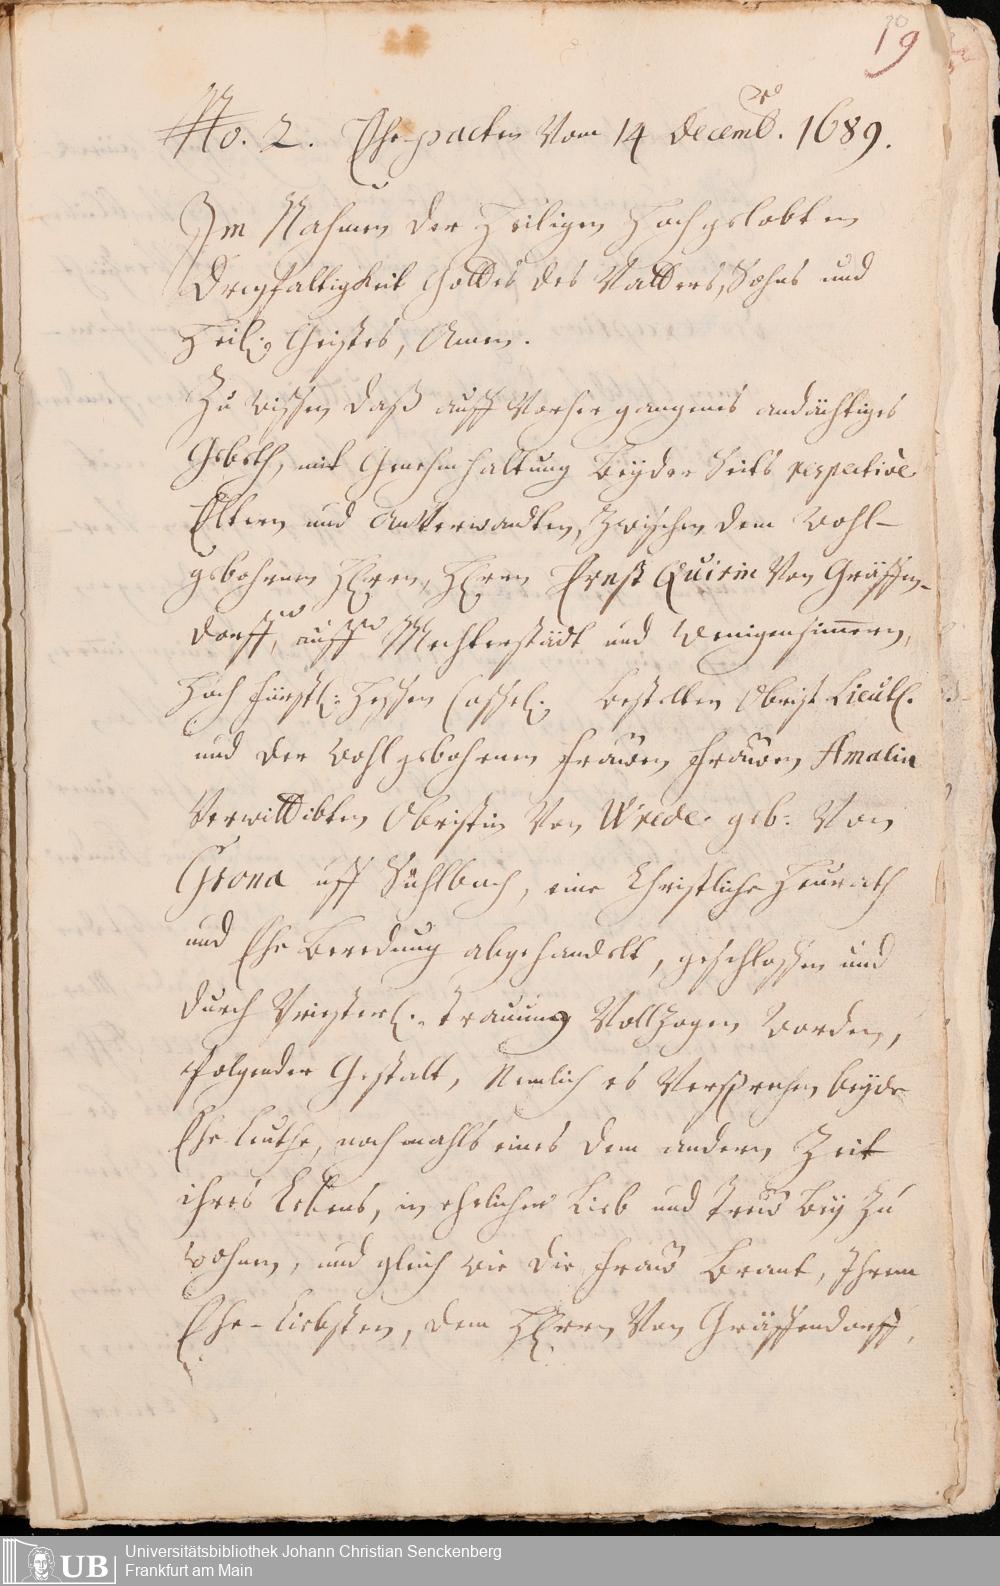 19
No. 2. Ehe pacten Vom 14 Decemb. 1689.
Im Nahmen der Heiligen Hochgelobten
Dreyfaltigkeit Gottes des Vatters, Sohns und
Heil: Geistes, Amen.
Zu wissen daß auff Vorhergangenes andächtiges
Gebeth, mit Genehmhaltung beyder seits respective
Eltern und Anverwandten, zwischen dem Wohl-
gebohrnen Herrn, Herrn Ernst Quirin Von Gräffen-
dorff, auff Mechterstädt und Wenigensimmern,
Hoch fürstl: Hessen Cassel: bestellten Obrist Lieutl.
und der Wohlgebohrnen frauen frauen Amalia
Verwittibten Obristin Von Wrede geb: Von
Grona uff Sühlbach, eine Christliche Heurath
und Ehe Beredung abgehandelt, geschlossen und
durch Priesterl: trauung Vollzogen worden,
folgender Gestalt, Nemlich es Versprechen beyde
Ehe Leuthe, nochmahls eines dem andern Zeit
ihres Lebens, in ehelicher Lieb und Treu bey zu
wohnen, und gleich wie die frau Braut, Ihrem
Ehe-Liebsten, dem Herrn Von Gräffendorff,
UB
Universitätsbibliothek Johann Christian Senckenberg
Frankfurt am Main